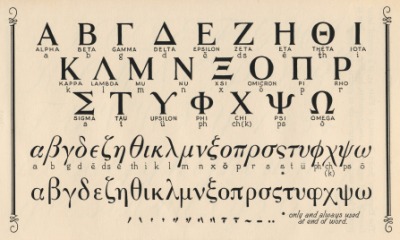 Α Β Γ Δ Ε Ζ Η Θ Ι
ALPHA BETA GAMMA DELTA EPSILON ZETA ETA THETA IOTA
a b g d ĕ dz ē th i
Κ Λ Μ Ν Ξ Ο Π Ρ
KAPPA LAMBDA MU NU XSI OMICRON PI RHO
k l m n x ŏ p r
Σ Τ Υ Φ Χ Ψ Ω
SIGMA TAU UPSILON PHI CHI PSI OMEGA
s t ü ph ch(k) ps ō
αβγδεζηθικλμνξοπρσςτυφχψω
αβγδεζηθικλμνξοπρσςτυφχψω
* only and always used
at end of word.